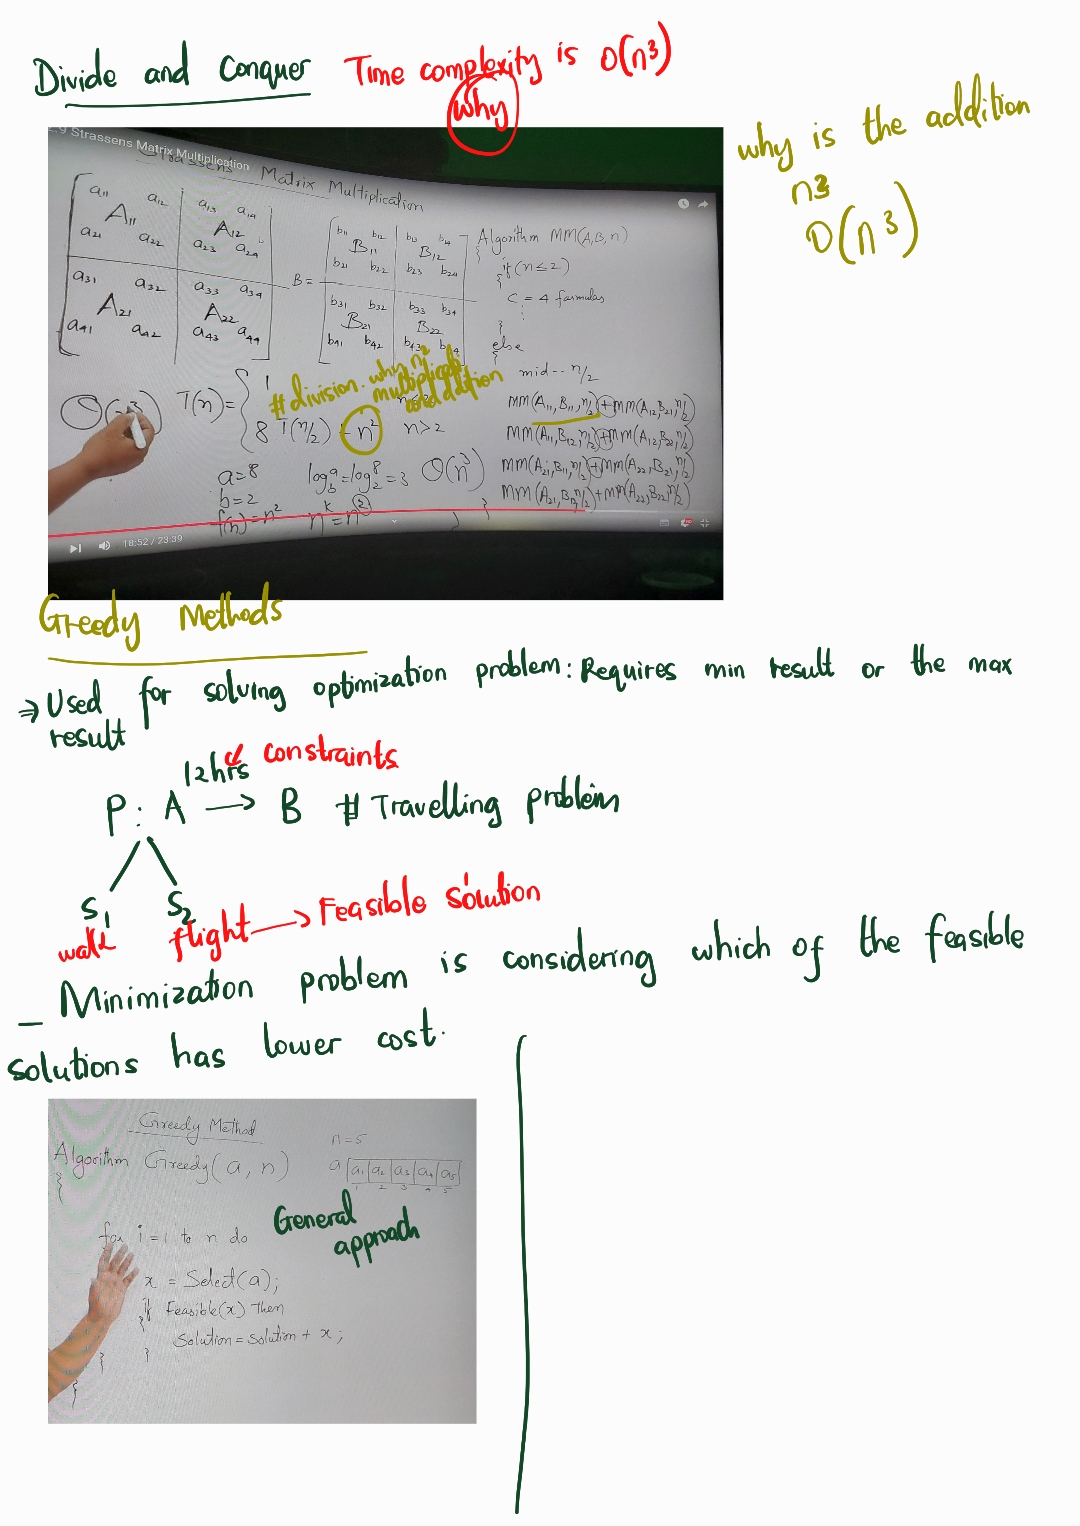 Divide and Conquer Time complexity is O(n³)
why
why is the addition
n²
O(n³)
2.9 Strassens Matrix Multiplication
Strassens Matrix Multiplication
a11 a12 a13 a14
A11 A12
a21 a22 a23 a24
a31 a32 a33 a34
A21 A22
a41 a42 a43 a44
B =
b11 b12 b13 b14
B11 B12
b21 b22 b23 b24
b31 b32 b33 b34
B21 B22
b41 b42 b43 b44
Algorithm MM(A,B,n)
{
if(n≤2)
{
C = 4 formulas
}
else
{
mid-- n/2
MM(A11,B11,n/2)+MM(A12,B21,n/2)
MM(A11,B12,n/2)+MM(A12,B22,n/2)
MM(A21,B11,n/2)+MM(A22,B21,n/2)
+MM(A22,B22,n/2)
}
# division. why n²
multiplicate
addition
T(n)= { 1
8T(n/2) + n² n>2
a=8
b=2
f(n)=n²
log_b a = log_2 8 = 3 O(n³)
n^k = n²
18:52 / 23:39
Greedy Methods
⇒ Used for solving optimization problem: Requires min result or the max
result
12hrs constraints
P: A → B # Travelling problem
S1 S2
walk flight → Feasible solution
- Minimization problem is considering which of the feasible
solutions has lower cost.
Greedy Method
Algorithm Greedy(a, n)
{
n=5
a a1 a2 a3 a4 a5
1 2 3 4 5
General
approach
for i=1 to n do
x = Select(a);
if Feasible(x) Then
{
Solution = Solution + x;
}
}